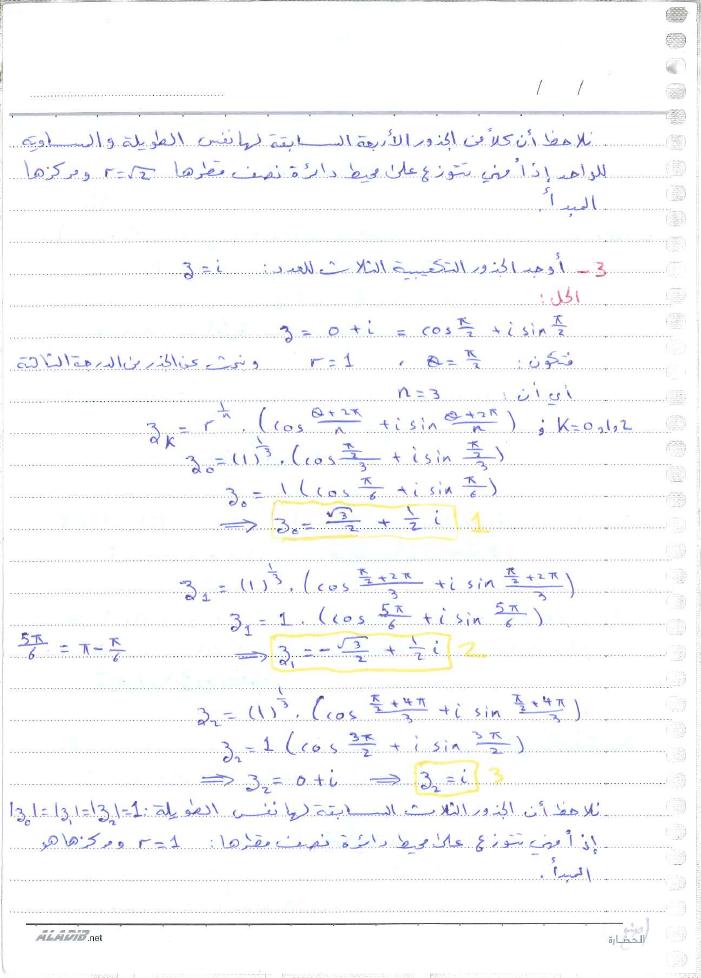 / /
نلاحظ أن كلاً من الجذور الأربعة السابقة لها نفس الطويلة والمساوية
للواحد إذاً فهي تتوزع على محيط دائرة نصف قطرها r=√2 ومركزها
المبدأ.
3- أوجد الجذور التكعيبية الثلاث للعدد: z=i
الحل:
z = 0+i = cos π/2 + i sin π/2
فتكون: θ=π/2 ، r=1 ونبحث عن الجذر من الدرجة الثالثة
أي أن: n=3
z_K = r^(1/n) . (cos (θ+2π)/n + i sin (θ+2π)/n) ; K=0,1,2
z_0 = (1)^(1/3) . (cos (π/2)/3 + i sin (π/2)/3)
z_0 = 1 (cos π/6 + i sin π/6)
⟹ z_0 = √3/2 + 1/2 i 1
z_1 = (1)^(1/3) . (cos (π/2+2π)/3 + i sin (π/2+2π)/3)
z_1 = 1 . (cos 5π/6 + i sin 5π/6)
5π/6 = π - π/6 ⟹ z_1 = -√3/2 + 1/2 i 2
z_2 = (1)^(1/3) . (cos (π/2+4π)/3 + i sin (π/2+4π)/3)
z_2 = 1 (cos 3π/2 + i sin 3π/2)
⟹ z_2 = 0+i ⟹ z_2 = i 3
نلاحظ أن الجذور الثلاث السابقة لها نفس الطويلة: |z_0|=|z_1|=|z_2|=1
إذاً فهي تتوزع على محيط دائرة نصف قطرها: r=1 ومركزها هو
المبدأ.
ALADIB.net
الحضارة